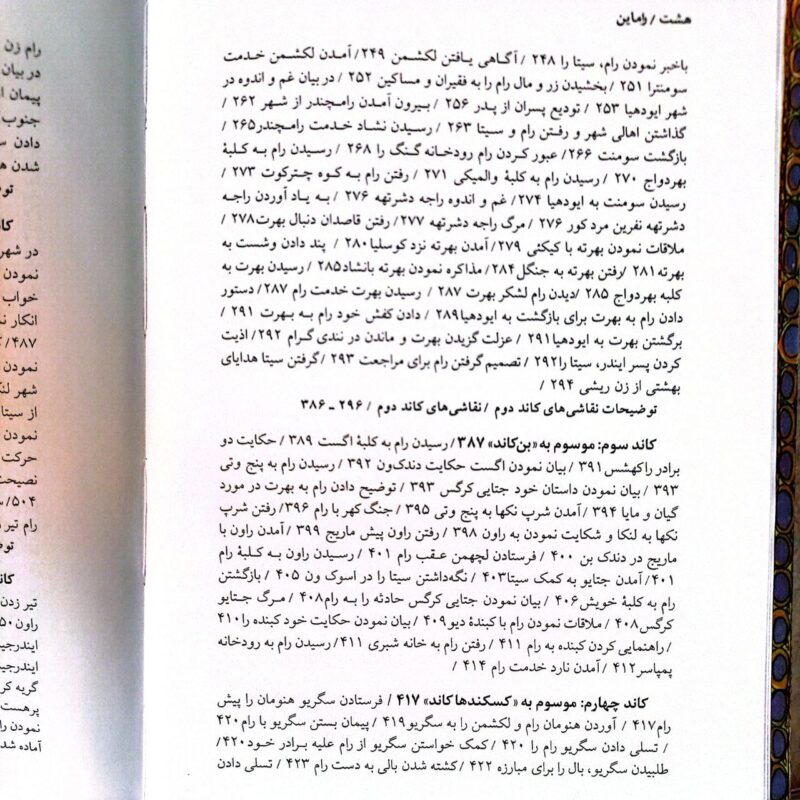 هشت / راماین
باخبر نمودن رام، سیتا را ۲۴۸ / آگاهی یافتن لکشمن ۲۴۹/ آمدن لکشمن خدمت
سومنترا ۲۵۱ / بخشیدن زر و مال رام را به فقیران و مساکین ۲۵۲ / در بیان غم و اندوه در
شهر ایودهیا ۲۵۳ / تودیع پسران از پدر ۲۵۶ / بیرون آمدن رامچندر از شهر ۲۶۲ /
گذاشتن اهالی شهر و رفتن رام و سیتا ۲۶۳ / رسیدن نشاد خدمت رامچندر۲۶۵/
بازگشت سومنت ۲۶۶/ عبور کردن رام رودخانه گنگ را ۲۶۸ / رسیدن رام به کلبهٔ
بهردواج ۲۷۰ / رسیدن رام به کلبهٔ والمیکی ۲۷۱ / رفتن رام به کوه چترکوت ۲۷۳ /
رسیدن سومنت به ایودهیا ۲۷۴/ غم و اندوه راجه دشرتهه ۲۷۶ / به یاد آوردن راجه
دشرتهه نفرین مرد کور ۲۷۶ / مرگ راجه دشرتهه ۲۷۷/ رفتن قاصدان دنبال بهرت۲۷۸/
ملاقات نمودن بهرته با کیکئی ۲۷۹/ آمدن بهرته نزد کوسلیا ۲۸۰ / پند دادن وشست به
بهرته۲۸۱ /رفتن بهرته به جنگل۲۸۴/ مذاکره نمودن بهرته بانشاد۲۸۵/ رسیدن بهرت به
کلبه بهردواج ۲۸۵ /دیدن رام لشکر بهرت ۲۸۷ / رسیدن بهرت خدمت رام ۲۸۷/ دستور
دادن رام به بهرت برای بازگشت به ایودهیا۲۸۹/ دادن کفش خود رام به بهرت ۲۹۱ /
برگشتن بهرت به ایودهیا۲۹۱ / عزلت گزیدن بهرت و ماندن در نندی گرام ۲۹۲/ اذیت
کردن پسر ایندر، سیتا را۲۹۲ / تصمیم گرفتن رام برای مراجعت ۲۹۳ /گرفتن سیتا هدایای
بهشتی از زن ریشی ۲۹۴ /
توضیحات نقاشی‌های کاند دوم / نقاشی‌های کاند دوم / ۲۹۶ ـ ۳۸۶
کاند سوم: موسوم به «بن‌کاند» ۳۸۷/ رسیدن رام به کلبهٔ اگست ۳۸۹ / حکایت دو
برادر راکهشس ۳۹۱ / بیان نمودن اگست حکایت دندک‌ون ۳۹۲ / رسیدن رام به پنج وتی
۳۹۳ / بیان نمودن داستان خود جتایی کرگس ۳۹۳ / توضیح دادن رام به بهرت در مورد
گیان و مایا ۳۹۴ /آمدن شرپ نکها به پنج وتی ۳۹۵ / جنگ کهر با رام ۳۹۶/ رفتن شرپ
نکها به لنکا و شکایت نمودن به راون ۳۹۸ / رفتن راون پیش ماریج ۳۹۹ / آمدن راون با
ماریج در دندک بن ۴۰۰ / فرستادن لچهمن عقب رام ۴۰۱ / رسیدن راون به کلبهٔ رام
۴۰۱/ آمدن جتایو به کمک سیتا۴۰۳/ نگه‌داشتن سیتا را در اسوک ون ۴۰۵ / بازگشتن
رام به کلبهٔ خویش۴۰۶ / بیان نمودن جتایی کرگس حادثه را به رام۴۰۸/ مرگ جتایو
کرگس۴۰۸ / ملاقات نمودن رام با کبندهٔ دیو۴۰۹ / بیان نمودن حکایت خود کبنده را ۴۱۰
/ راهنمایی کردن کبنده به رام ۴۱۱ / رفتن رام به خانه شبری ۴۱۱ / رسیدن رام به رودخانه
پمپاسر۴۱۲/ آمدن نارد خدمت رام ۴۱۴ /
کاند چهارم: موسوم به «کسکندهاکاند» ۴۱۷ / فرستادن سگریو هنومان را پیش
رام۴۱۷ / آوردن هنومان رام و لکشمن را به سگریو ۴۱۹ / پیمان بستن سگریو با رام ۴۲۰
/ تسلی دادن سگریو رام را ۴۲۰ / کمک خواستن سگریو از رام علیه برادر خود۴۲۰/
طلبیدن سگریو، بال را برای مبارزه ۴۲۲ /کشته شدن بالی به دست رام ۴۲۳ / تسلی دادن
رام زن
در بیان
پیمان
جنوب
دادن
شدن
در شهر
نمودن
خواب
انکار
۴۸۷/
نمودن
شهر
از سیتا
نمودن
حرکت
نصیحت
۵۰۴/
رام تیر
تیر زدن
راون
ایندرجی
ایندرجی
گریه کر
پرهست
نمودن
آماده